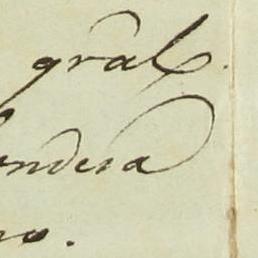 grãl.
ondera
no.